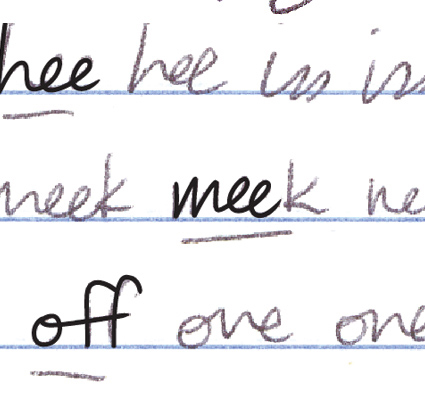 hee hee iss is
meek meek ne
off one one